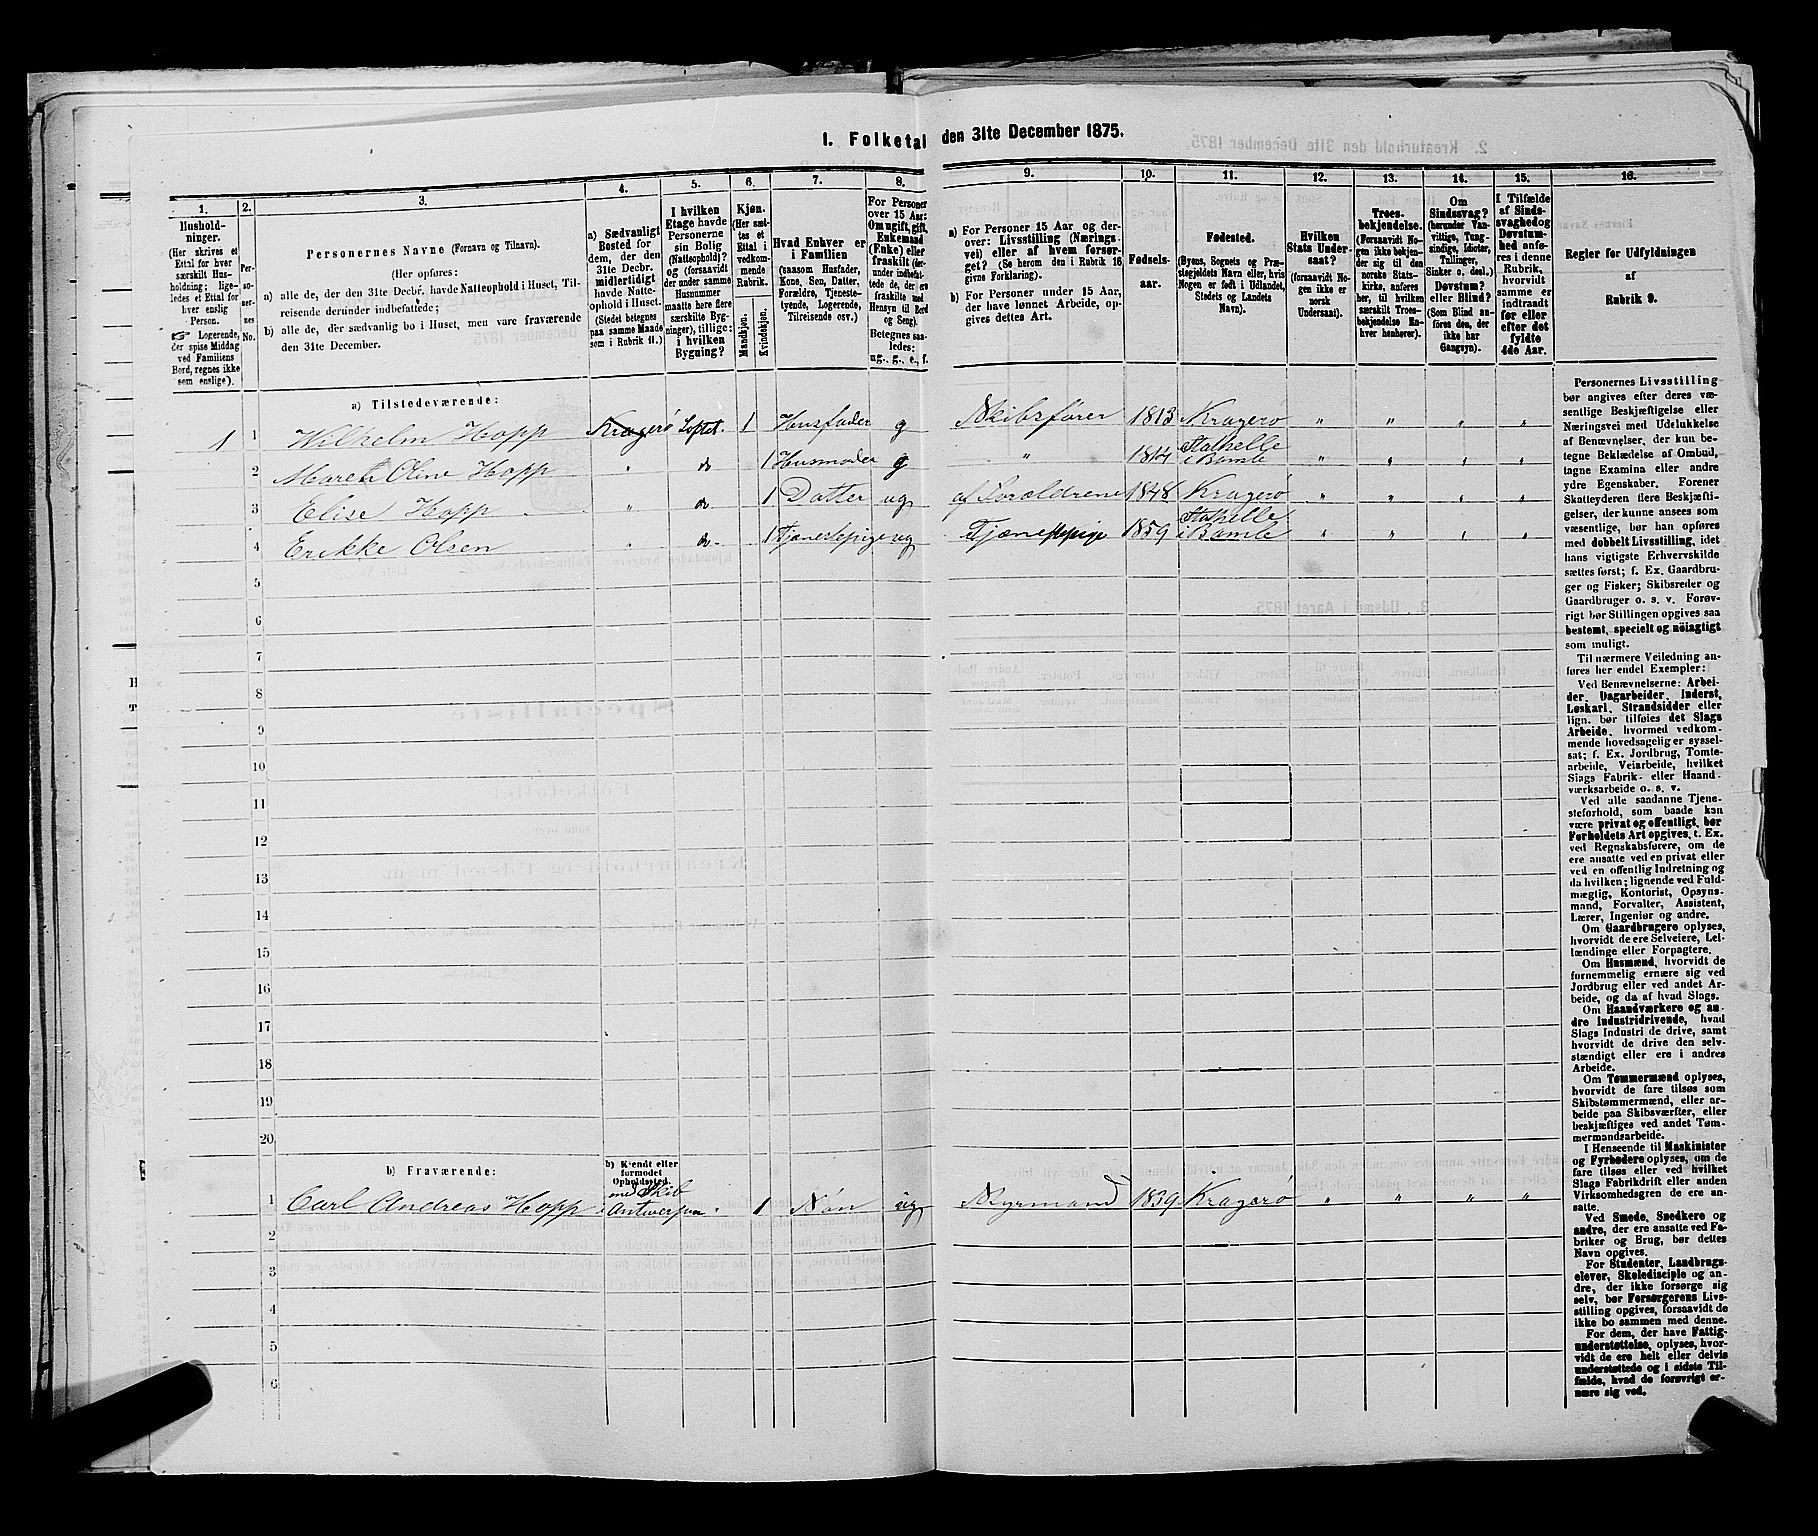 1. Folketal den 31te December 1875.
1.
Husholdninger.
(Her skrives et
Ettal for hver
særskilt Husholdning;
ligeledes et Ettal for
hver enslig
Person.
Logerende,
der spise Middag
ved Familiens
Bord, regnes ikke
som enslige).
2.
Personernes
No.
3.
Personernes Navne (Fornavn og Tilnavn).
(Her opføres:
a) alle de, der den 31te Decbr. havde Natteophold i Huset, Tilreisende derunder indbefattede;
b) alle de, der sædvanlig bo i Huset, men vare fraværende
den 31te December.
4.
a) Sædvanligt
Bosted for
dem, der den
31te Decbr.
midlertidigt
havde Natteophold i Huset.
(Stedet betegnes
paa samme Maade
som i Rubrik 11.)
5.
I hvilken
Etage havde
Personerne
sin Bolig
(Natteophold)?
og (forsaavidt
der under samme
Husnummer
maatte høre flere
særskilte Bygninger), tillige:
i hvilken
Bygning?
6.
Kjøn.
(Her sættes et
Ettal i
vedkommende
Rubrik.
Mandkjøn.
Kvindekjøn.
7.
Hvad Enhver er
i Familien
(saasom Husfader,
Kone, Søn, Datter,
Forældre, Tjenestetyende, Logerende,
Tilreisende osv.)
8.
For Personer
over 15 Aar:
Om ugift, gift,
Enkemand
(Enke) eller
fraskilt
Betegnes saaledes:
ug., g., e., f.
9.
a) For Personer 15 Aar og derover: Livsstilling (Næringsvei) eller af hvem forsørget? (Se herom den i Rubrik 16
givne Forklaring).
b) For Personer under 15 Aar,
der have lønnet Arbeide, opgives dettes Art.
10.
Fødselsaar.
11.
Fødested.
(Byens, Sognets og Præstegjeldets Navn eller, hvis
Nogen er født i Udlandet,
Stedets og Landets
Navn).
12.
Hvilken
Stats Undersaat?
(forsaavidt Nogen ikke er
norsk
Undersaat).
13.
Troesbekjendelse.
(Forsaavidt Nogen ikke bekjender sig til den
norske Statskirke, anføres
her, til hvilken
særskilt Troesbekjendelse Enhver henhører).
14.
Om
Sindssvag?
(herunder Vanvittige, Tungsindige, Idioter,
Tullinger,
Sinker o. desl.)
Døvstum?
eller Blind?
(Som Blind anføres den, der
ikke har
Gangsyn).
15.
I Tilfælde
af Sindssvaghed og
Døvstumhed anføres i denne
Rubrik,
hvorvidt
samme er
indtraadt
før eller
efter det
fyldte
4de Aar.
16.
Regler for Udfyldningen
af
Rubrik 9.
a) Tilstedeværende:
1 1 Wilhelm Hopp Kragerø Loftet. 1 Husfader g Skibsfører 1813 Kragerø " " " "
2 Maren Oline Hopp " do 1 Husmoder g " 1814 Stathelle i Bamle " " " "
3 Elise Hopp " do 1 Datter ug af Forældrene 1848 Kragerø " " " "
4 Erikke Olsen " do 1 Tjenestepige ug Tjenestepige 1859 Stathelle i Bamle " " " "
5
6
7
8
9
10
11
12
13
14
15
16
17
18
19
20
b) Fraværende:
b) Kjendt eller
formodet
Opholdssted.
1 Carl Andreas Hopp med Skib Antwerpen 1 Søn ug Styrmand 1839 Kragerø " " " "
2
3
4
5
6
Personernes Livsstilling
bør angives efter deres væsentlige Beskjæftigelse eller
Næringsvei med Udelukkelse
af Benævnelser, der kun betegne Beklædelse af Ombud,
tagne Examina eller andre
ydre Egenskaber. Forener
Skatteyderen flere Beskjæftigelser, der kunne ansees som
væsentlige, bør han opføres
med dobbelt Livsstilling, idet
hans vigtigste Erhvervskilde
sættes først; f. Ex. Gaardbruger og Fisker; Skibsreder og
Gaardbruger o. s. v. Forøvrigt bør Stillingen opgives saa
bestemt, specielt og nöiagtigt
som muligt.
Til nærmere Veiledning anføres her endel Exempler:
Ved Benævnelserne: Arbeider, Dagarbeider, Inderst,
Løskarl, Strandsidder eller
lign. bør tilføies det Slags
Arbeide, hvormed vedkommende hovedsagelig er sysselsat; f. Ex. Jordbrug, Tomtearbeide, Veiarbeide, hvilket
Slags Fabrik- eller Haandværksarbeide o. s. v.
Ved alle saadanne Tjenesteforhold, som baade kan
være privat og offentligt, bør
Forholdets Art opgives, t. Ex.
ved Regnskabsførere, om de
ere ansatte ved en privat eller
ved en offentlig Indretning og
da hvilken; lignende ved Fuldmægtig, Kontorist, Opsynsmand, Forvalter, Assistent,
Lærer, Ingeniør og andre.
Om Gaardbrugere oplyses,
hvorvidt de ere Selveiere, Leilændinge eller Forpagtere.
Om Husmænd, hvorvidt de
fornemmelig ernære sig ved
Jordbrug eller ved andet Arbeide, og da af hvad Slags.
Om Haandværkere og andre Industridrivende, hvad
Slags Industri de drive, samt
hvorvidt de drive den selvstændigt eller ere i andres
Arbeide.
Om Tømmermænd oplyses,
hvorvidt de fare tilsøs som
Skibstømmermænd, eller arbeide paa Skibsværfter, eller
beskjæftiges ved andet Tømmermandsarbeide.
I Henseende til Maskinister
og Fyrbødere oplyses, om de
fare tilsøs eller ved hvilket
Slags Fabrikdrift eller anden
Virksomhedsgren de ere ansatte.
Ved Smede, Snedkere og
andre, der ere ansatte ved Fabriker og Brug, bør dettes
Navn opgives.
For Studenter, Landbrugselever, Skoledisciple og andre, der ikke forsørge sig
selv, bør Forsørgerens Livsstilling opgives, forsaavidt de
ikke bo sammen med denne.
For dem, der have Fattigunderstøttelse, oplyses, hvorvidt de ere helt eller delvis
understøttede og i sidste Tilfælde, hvad de forøvrigt ernære sig ved.